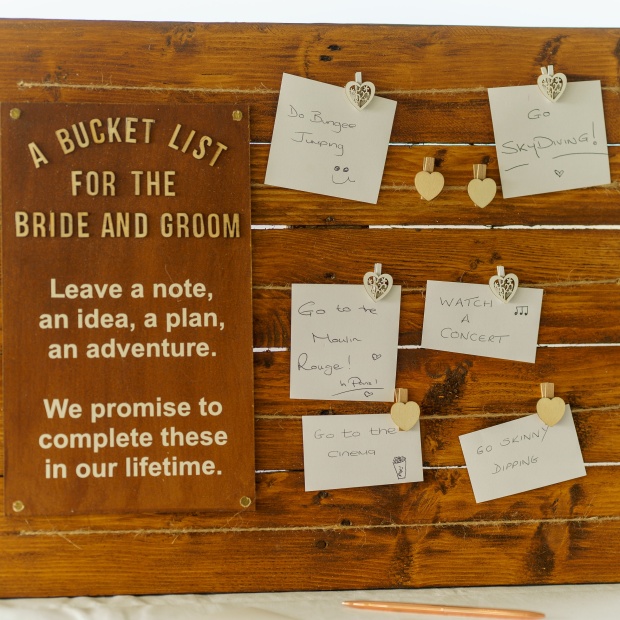 A BUCKET LIST
FOR THE
BRIDE AND GROOM
Leave a note,
an idea, a plan,
an adventure.
We promise to
complete these
in our lifetime.
Do Bungee
Jumping
Go
SKYDIVING!
Go to the
Moulin
Rouge!
in Paris!
WATCH
A
CONCERT
Go to the
cinema
GO SKINNY
DIPPING